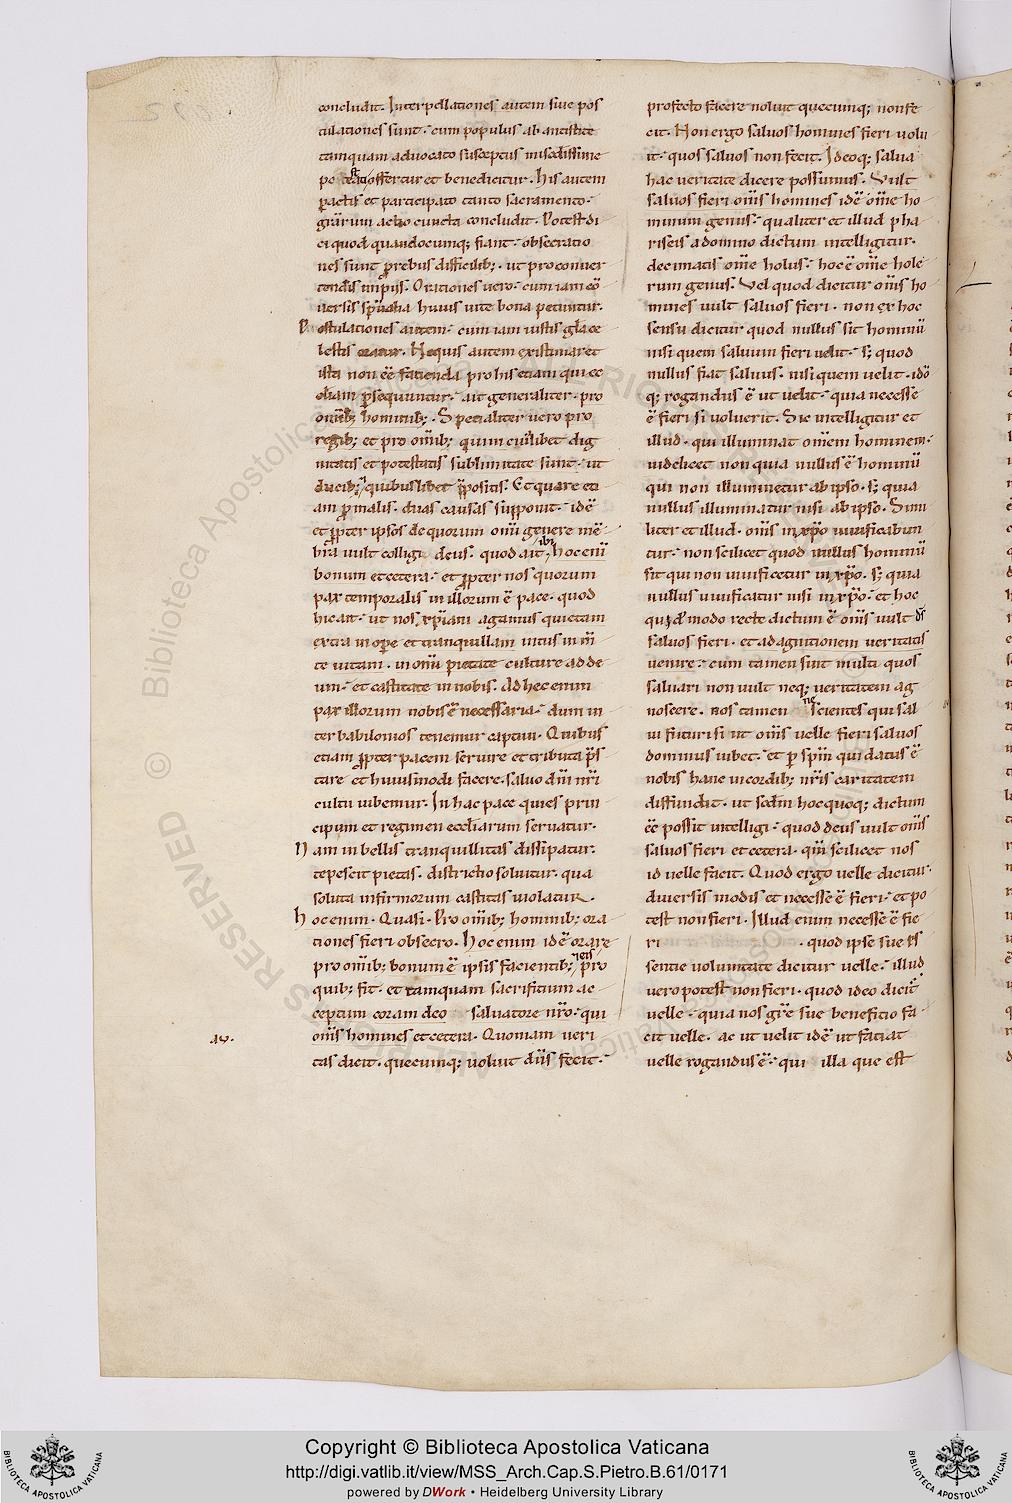 concludit. Interpellationes autem siue pos
tulationes sunt. cum populus ab antistite
tamquam aduocato susceptus misc̄dissime
po testati offertur et benedicitur. His autem
peractis et participato tanto sacramento.
grarum actio cuncta concludit. Potest di
ci quod quandocumq; fiant. obsecratio
nes sunt p rebus difficilib;. ut pro conuer
tendis impiis. Orationes uero. cum iam cō
uersis spualia huius uite bona petuntur.
Postulationes autem. cum iam iustis gl̄a ce
lestis oratur. Ne quis autem existimaret
ista non eē facienda pro his etiam qui ec
cl̄iam psequuntur. ait generaliter. pro
omib; hominib;. Specialiter uero pro
regib; et pro omib; qui in cuiuslibet dig
nitatis et potestatis sublimitate sunt. ut
ducib; quibuslibet p̄positis. Et quare eti
am p malis. duas causas supponit. idē
et ppter ipsos de quorum omī genere mē
bra uult colligi deus. quod ait ibi, hoc enī
bonum et cetera. et ppter nos quorum
pax temporalis in illorum ē pace. quod
hic ait. ut nos xpiani agamus quietam
extra in ope et tranquillam intus in m̄
te uitam. in omī pietate culture ad de
um. et castitate in nobis. Ad hec enim
pax illorum nobis ē necessaria. dum in
ter babilonios tenemur captiui. Quibus
etiam ppter pacem seruire et tributa p̄s
tare et huiusmodi facere. saluo dn̄i nr̄i
cultu iubemur. In hac pace quies prin
cipum et regimen eccl̄iarum seruatur.
Nam in bellis tranquillitas dissipatur.
tepescit pietas. districtio soluitur. qua
soluta infirmorum castitas uiolatur.
Hoc enim. Quasi. Pro omib; hominib; ora
tiones fieri obsecro. Hoc enim idē orare
pro omib; bonum ē ipsis facientib; pro
quib; fit. et tamquam sacrificium ac
ceptum coram deo saluatore nr̄o. qui
om̄s homines et cetera. Quoniam ueri
tas dicit. quecumq; uoluit dn̄s fecit.
aug.
profecto facere noluit quecumq; non fe
cit. Non ergo saluos homines fieri uolu
it. quos saluos non fecit. Ideoq; salua
hac ueritate dicere possumus. Vult
saluos fieri om̄s homines idē om̄e ho
minum genus. qualiter et illud pha
riseis a domino dictum intelligitur.
decimatis om̄e holus. hoc ē om̄e hole
rum genus. Vel quod dicitur om̄s ho
mines uult saluos fieri. non ex hoc
sensu dicitur quod nullus sit hominū
nisi quem saluum fieri uelit. s; quod
nullus fiat saluus. nisi quem uelit. ideo
q; rogandus ē ut uelit. quia necesse
ē fieri si uoluerit. Sic intelligitur et
illud. qui illuminat omnem hominem.
uidelicet non quia nullus ē hominū
qui non illuminetur ab ipso. s; quia
nullus illuminatur nisi ab ipso. Simi
liter et illud. om̄s in xp̄o uiuificabun
tur. non scilicet quod nullus hominū
sit qui non uiuificetur in xp̄o. s; quia
nullus uiuificatur nisi in xp̄o. et hoc
quoq; modo recte dictum ē om̄s uult ds̄
saluos fieri. et ad agnitionem ueritatis
uenire. cum tamen sint multi quos
saluari non uult neq; ueritatem ag
noscere. nos tamen nescientes qui sal
ui futuri si ut om̄s uelle fieri saluos
dominus iubet. et p spm̄ qui datus ē
nobis hanc in cordib; nr̄is caritatem
diffundit. ut scdm̄ hoc quoq; dictum
eē possit intelligi. quod deus uult om̄s
saluos fieri et cetera. qm̄ scilicet nos
id uelle facit. Quod ergo uelle dicitur.
diuersis modis et necesse ē fieri. et po
test non fieri. Illud enim necesse ē fie
ri . quod ipse sue p̄s
sentie uoluntate dicitur uelle. illud
uero potest non fieri. quod ideo dicit
uelle. quia nos gr̄e sue beneficio fa
cit uelle. ac ut uelit idē ut faciat
uelle rogandus ē. qui illa que est
Copyright © Biblioteca Apostolica Vaticana
http://digi.vatlib.it/view/MSS_Arch.Cap.S.Pietro.B.61/0171
powered by DWork • Heidelberg University Library